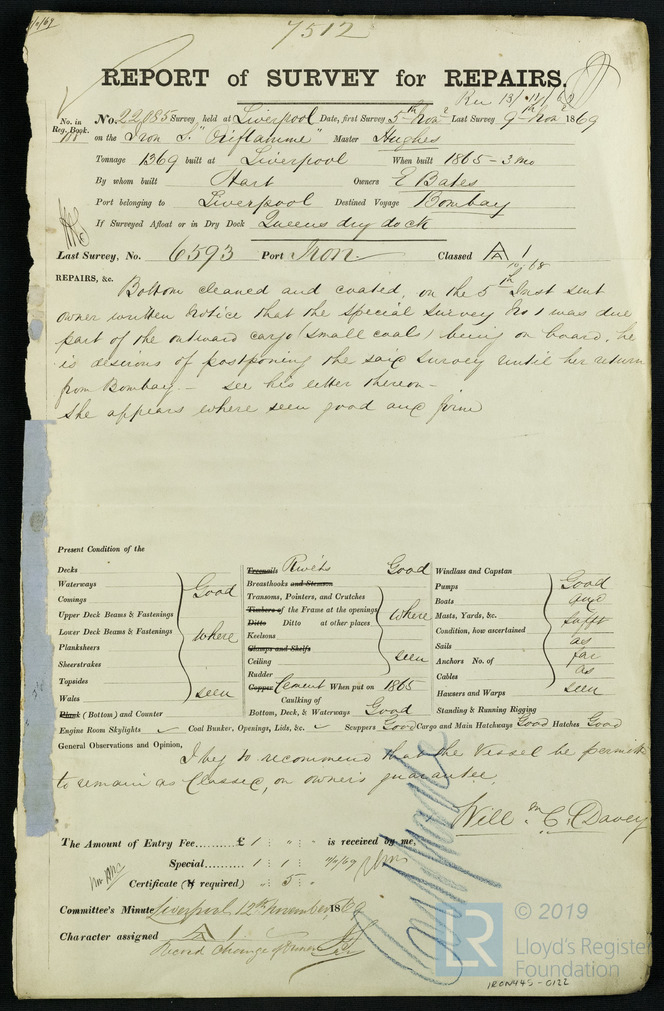 7512
REPORT of SURVEY for REPAIRS.
Rec 13/11/69
No. in Reg. Book.
No. 22085 Survey held at Liverpool Date, first Survey 5th Novr Last Survey 9th Novr 1869
on the Iron S. "Oriflamme" Master Hughes
Tonnage 1369 built at Liverpool When built 1865 - 3 mo
By whom built Hart Owners E Bates
Port belonging to Liverpool Destined Voyage Bombay
If Surveyed Afloat or in Dry Dock Queens dry dock
Last Survey, No. 6593 Port Iron Classed A 1
10, 68
REPAIRS, &c. Bottom cleaned and coated, on the 5th Inst sent
owner written notice that the special survey No 1 was due
part of the outward cargo (small coals) being on board, he
is desirous of postponing the said survey until her return
from Bombay - see his letter thereon -
She appears where seen good and firm
Present Condition of the
Decks
Waterways
Comings
Upper Deck Beams & Fastenings
Lower Deck Beams & Fastenings
Planksheers
Sheerstrakes
Topsides
Wales
Good where seen
Plank (Bottom) and Counter
Treenails Rivets Good
Breasthooks and Stemson
Transoms, Pointers, and Crutches
Timbers of the Frame at the openings
Ditto Ditto at other places
Keelsons
Clamps and Shelfs
Ceiling
Rudder
where seen
Copper Cement When put on 1865
Caulking of
Bottom, Deck, & Waterways Good
Windlass and Capstan
Pumps
Boats
Masts, Yards, &c.
Condition, how ascertained
Sails
Anchors No. of
Cables
Hawsers and Warps
Good and sufft as far as seen
Standing & Running Rigging
Engine Room Skylights ✓ Coal Bunker, Openings, Lids, &c. ✓ Scuppers Good Cargo and Main Hatchways Good Hatches Good
General Observations and Opinion,
I beg to recommend that the Vessel be permitted
to remain as Classed, on owner's guarantee
Will m C. Davey
The Amount of Entry Fee.......... £ 1 : " : " is received by me,
Special.......... 1 : 1 :
Certificate (if required) : 5 :
Committee's Minute Liverpool 12th November 1869
Character assigned A 1
Record change of owner
© 2019
LR
Lloyd's Register
Foundation
IRON445-0122